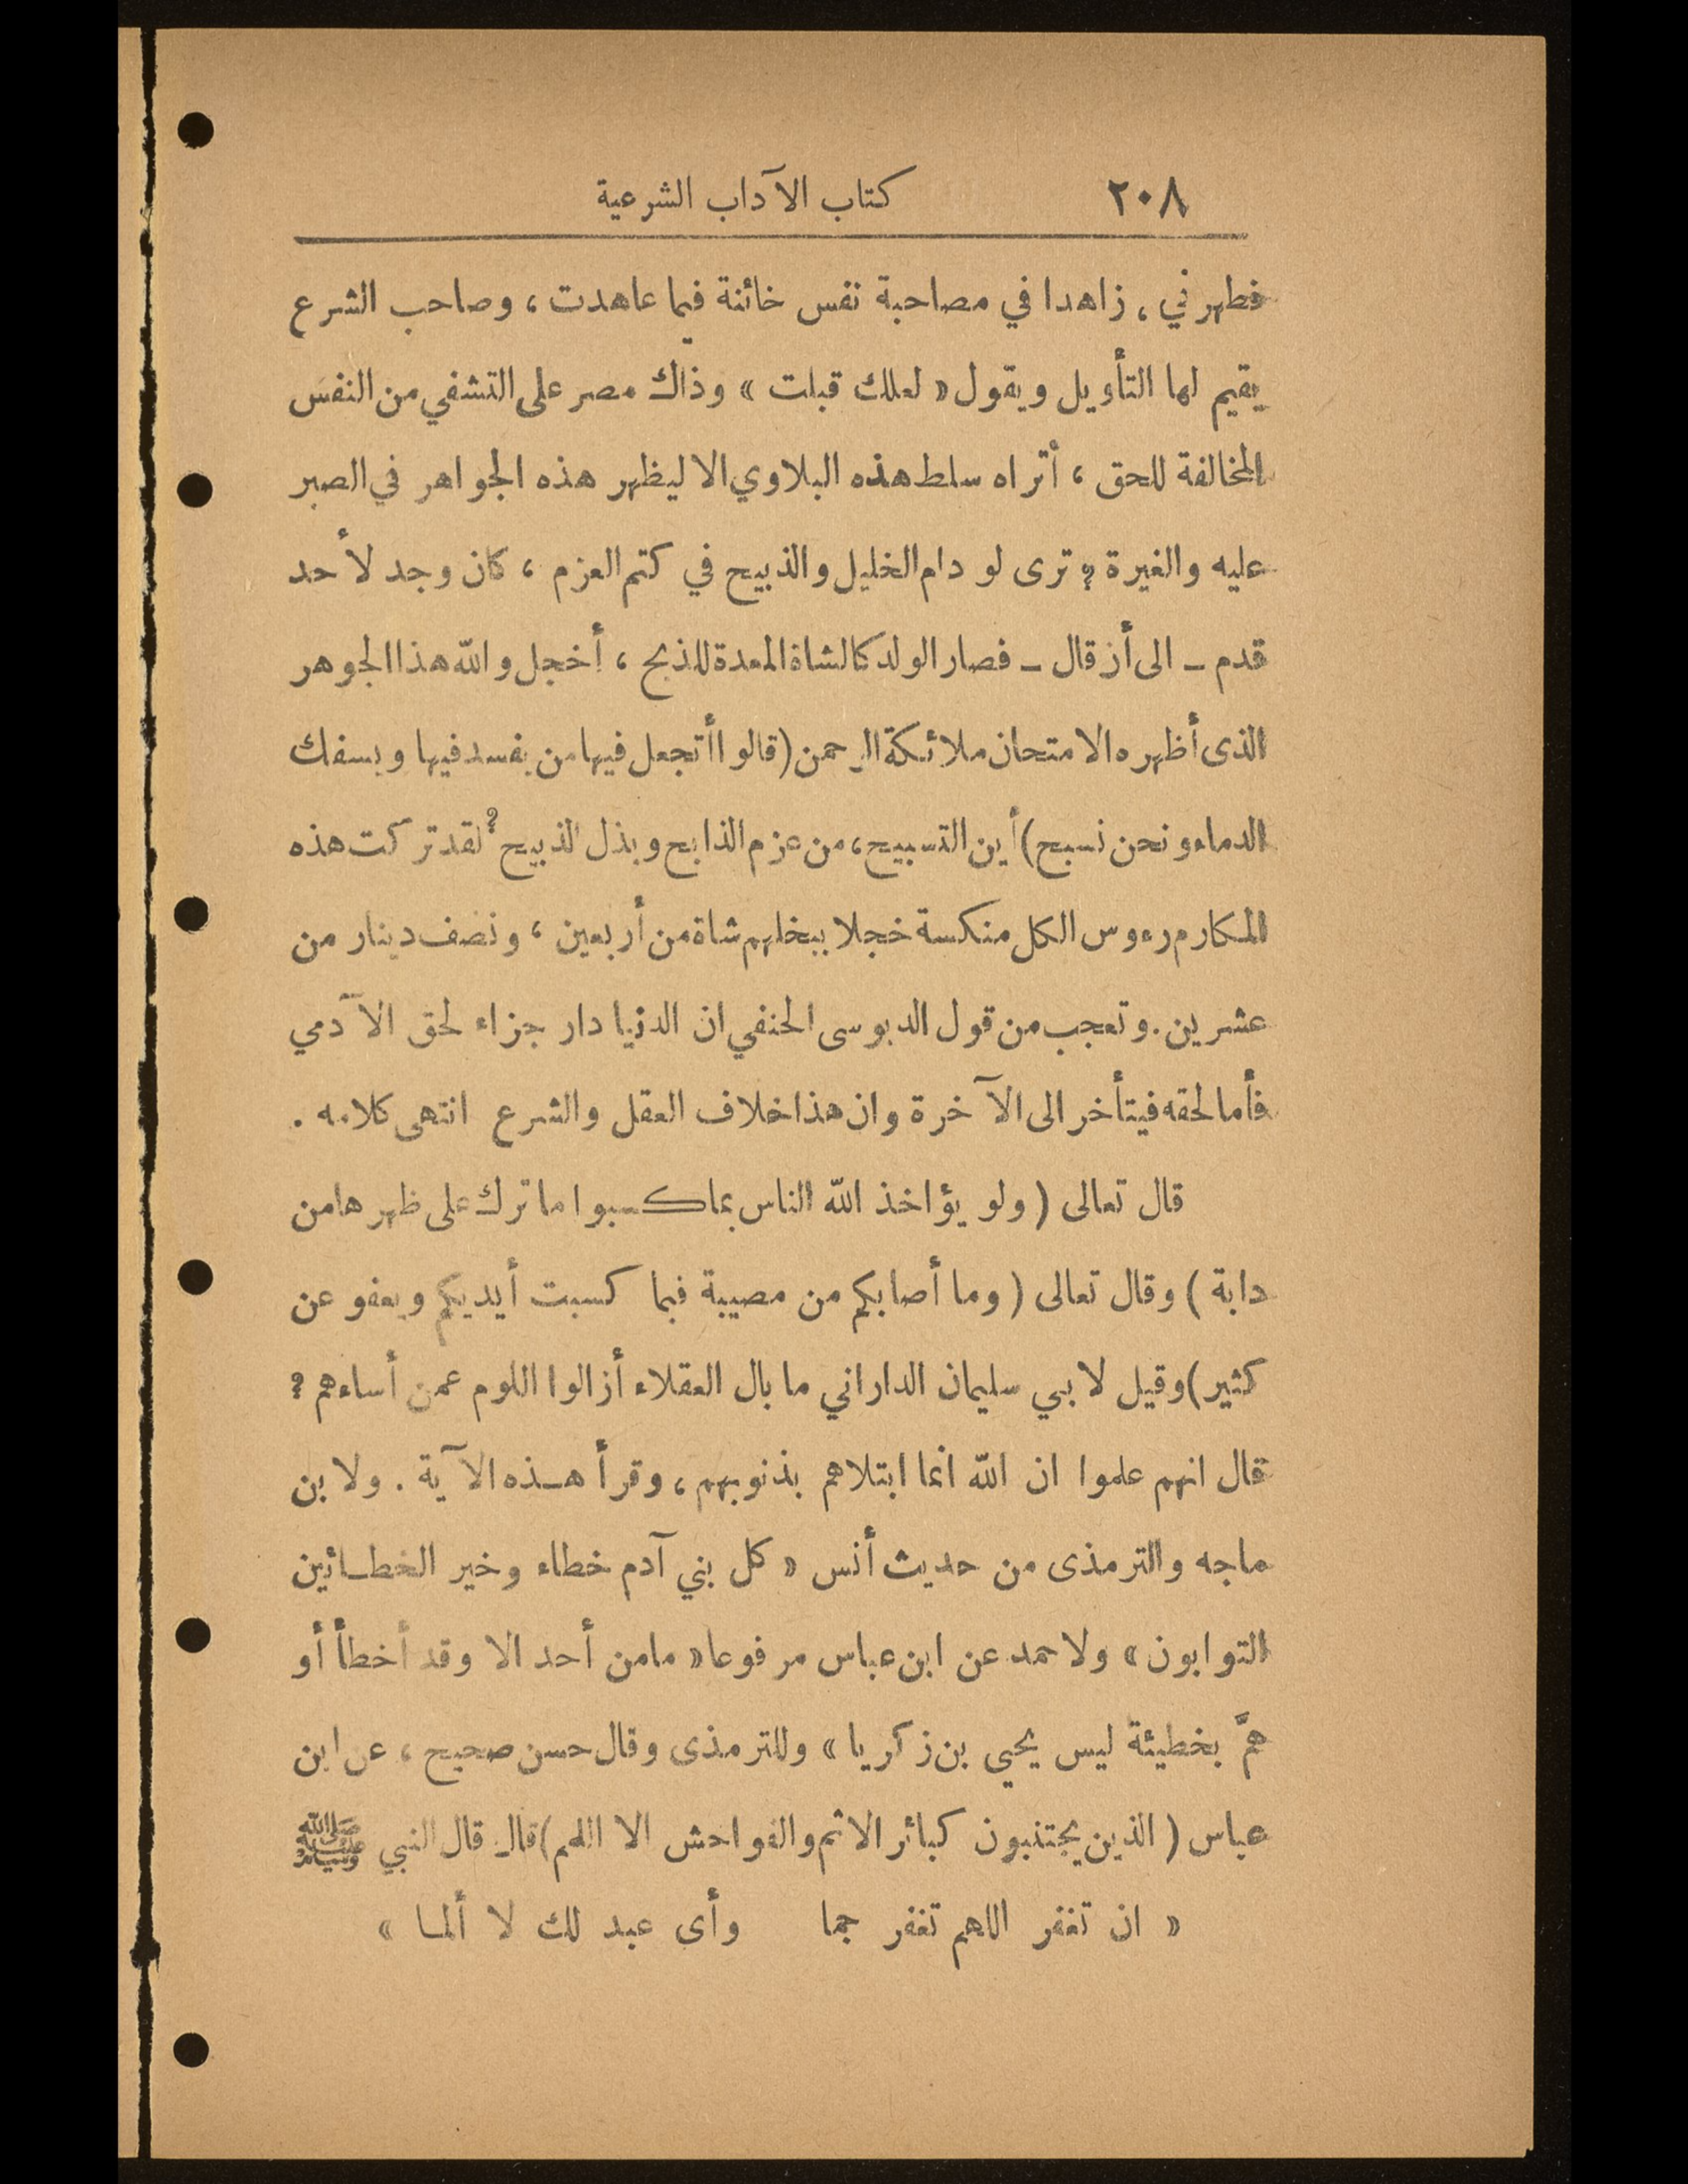 ٢٠٨ كتاب الآداب الشرعية
فطهرني، زاهدا في مصاحبة نفس خائنة فيما عاهدت، وصاحب الشرع
يقيم لها التأويل ويقول «لعلك قبلت» وذاك مصر على التشفي من النفس
المخالفة للحق، أتراه سلط هذه البلاوي الا ليظهر هذه الجواهر في الصبر
عليه والغيرة؟ ترى لو دام الخليل والذبيح في كتم العزم، كان وجد لأحد
قدم ـ الى أن قال ـ فصار الولد كالشاة المعدة للذبح، أخجل والله هذا الجوهر
الذى أظهره الامتحان ملائكة الرحمن (قالوا أتجعل فيها من يفسد فيها ويسفك
الدماء ونحن نسبح) أين التسبيح، من عزم الذابح وبذل الذبيح؟ لقد تركت هذه
المكارم رءوس الكل منكسة خجلا ببخلهم شاة من أربعين، ونصف دينار من
عشرين. وتعجب من قول الدبوسى الحنفي ان الدنيا دار جزاء لحق الآدمي
فأما لحقه فيتأخر الى الآخرة وان هذا خلاف العقل والشرع انتهى كلامه.
قال تعالى (ولو يؤاخذ الله الناس بما كسبوا ما ترك على ظهرها من
دابة) وقال تعالى (وما أصابكم من مصيبة فبما كسبت أيديكم ويعفو عن
كثير) وقيل لابي سليمان الداراني ما بال العقلاء أزالوا اللوم عمن أساءهم؟
قال انهم علموا ان الله انما ابتلاهم بذنوبهم، وقرأ هـذه الآية. ولابن
ماجه والترمذى من حديث أنس «كل بني آدم خطاء وخير الخطـائين
التوابون» ولاحمد عن ابن عباس مرفوعا «ما من أحد الا وقد أخطأ أو
همَّ بخطيئة ليس يحيي بن زكريا» وللترمذى وقال حسن صحيح، عن ابن
عباس (الذين يجتنبون كبائر الاثم والفواحش الا اللمم) قال قال النبي ﷺ
«ان تغفر اللهم تغفر جما وأى عبد لك لا ألمـا»